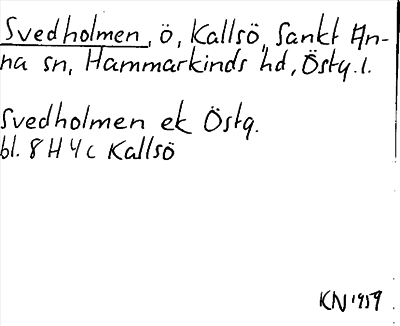 Svedholmen, ö, Kallsö, Sankt An-
na sn, Hammarkinds hd, Östg. l.
Svedholmen ek Östg.
bl. 8 H 4 c Kallsö
KN 1959